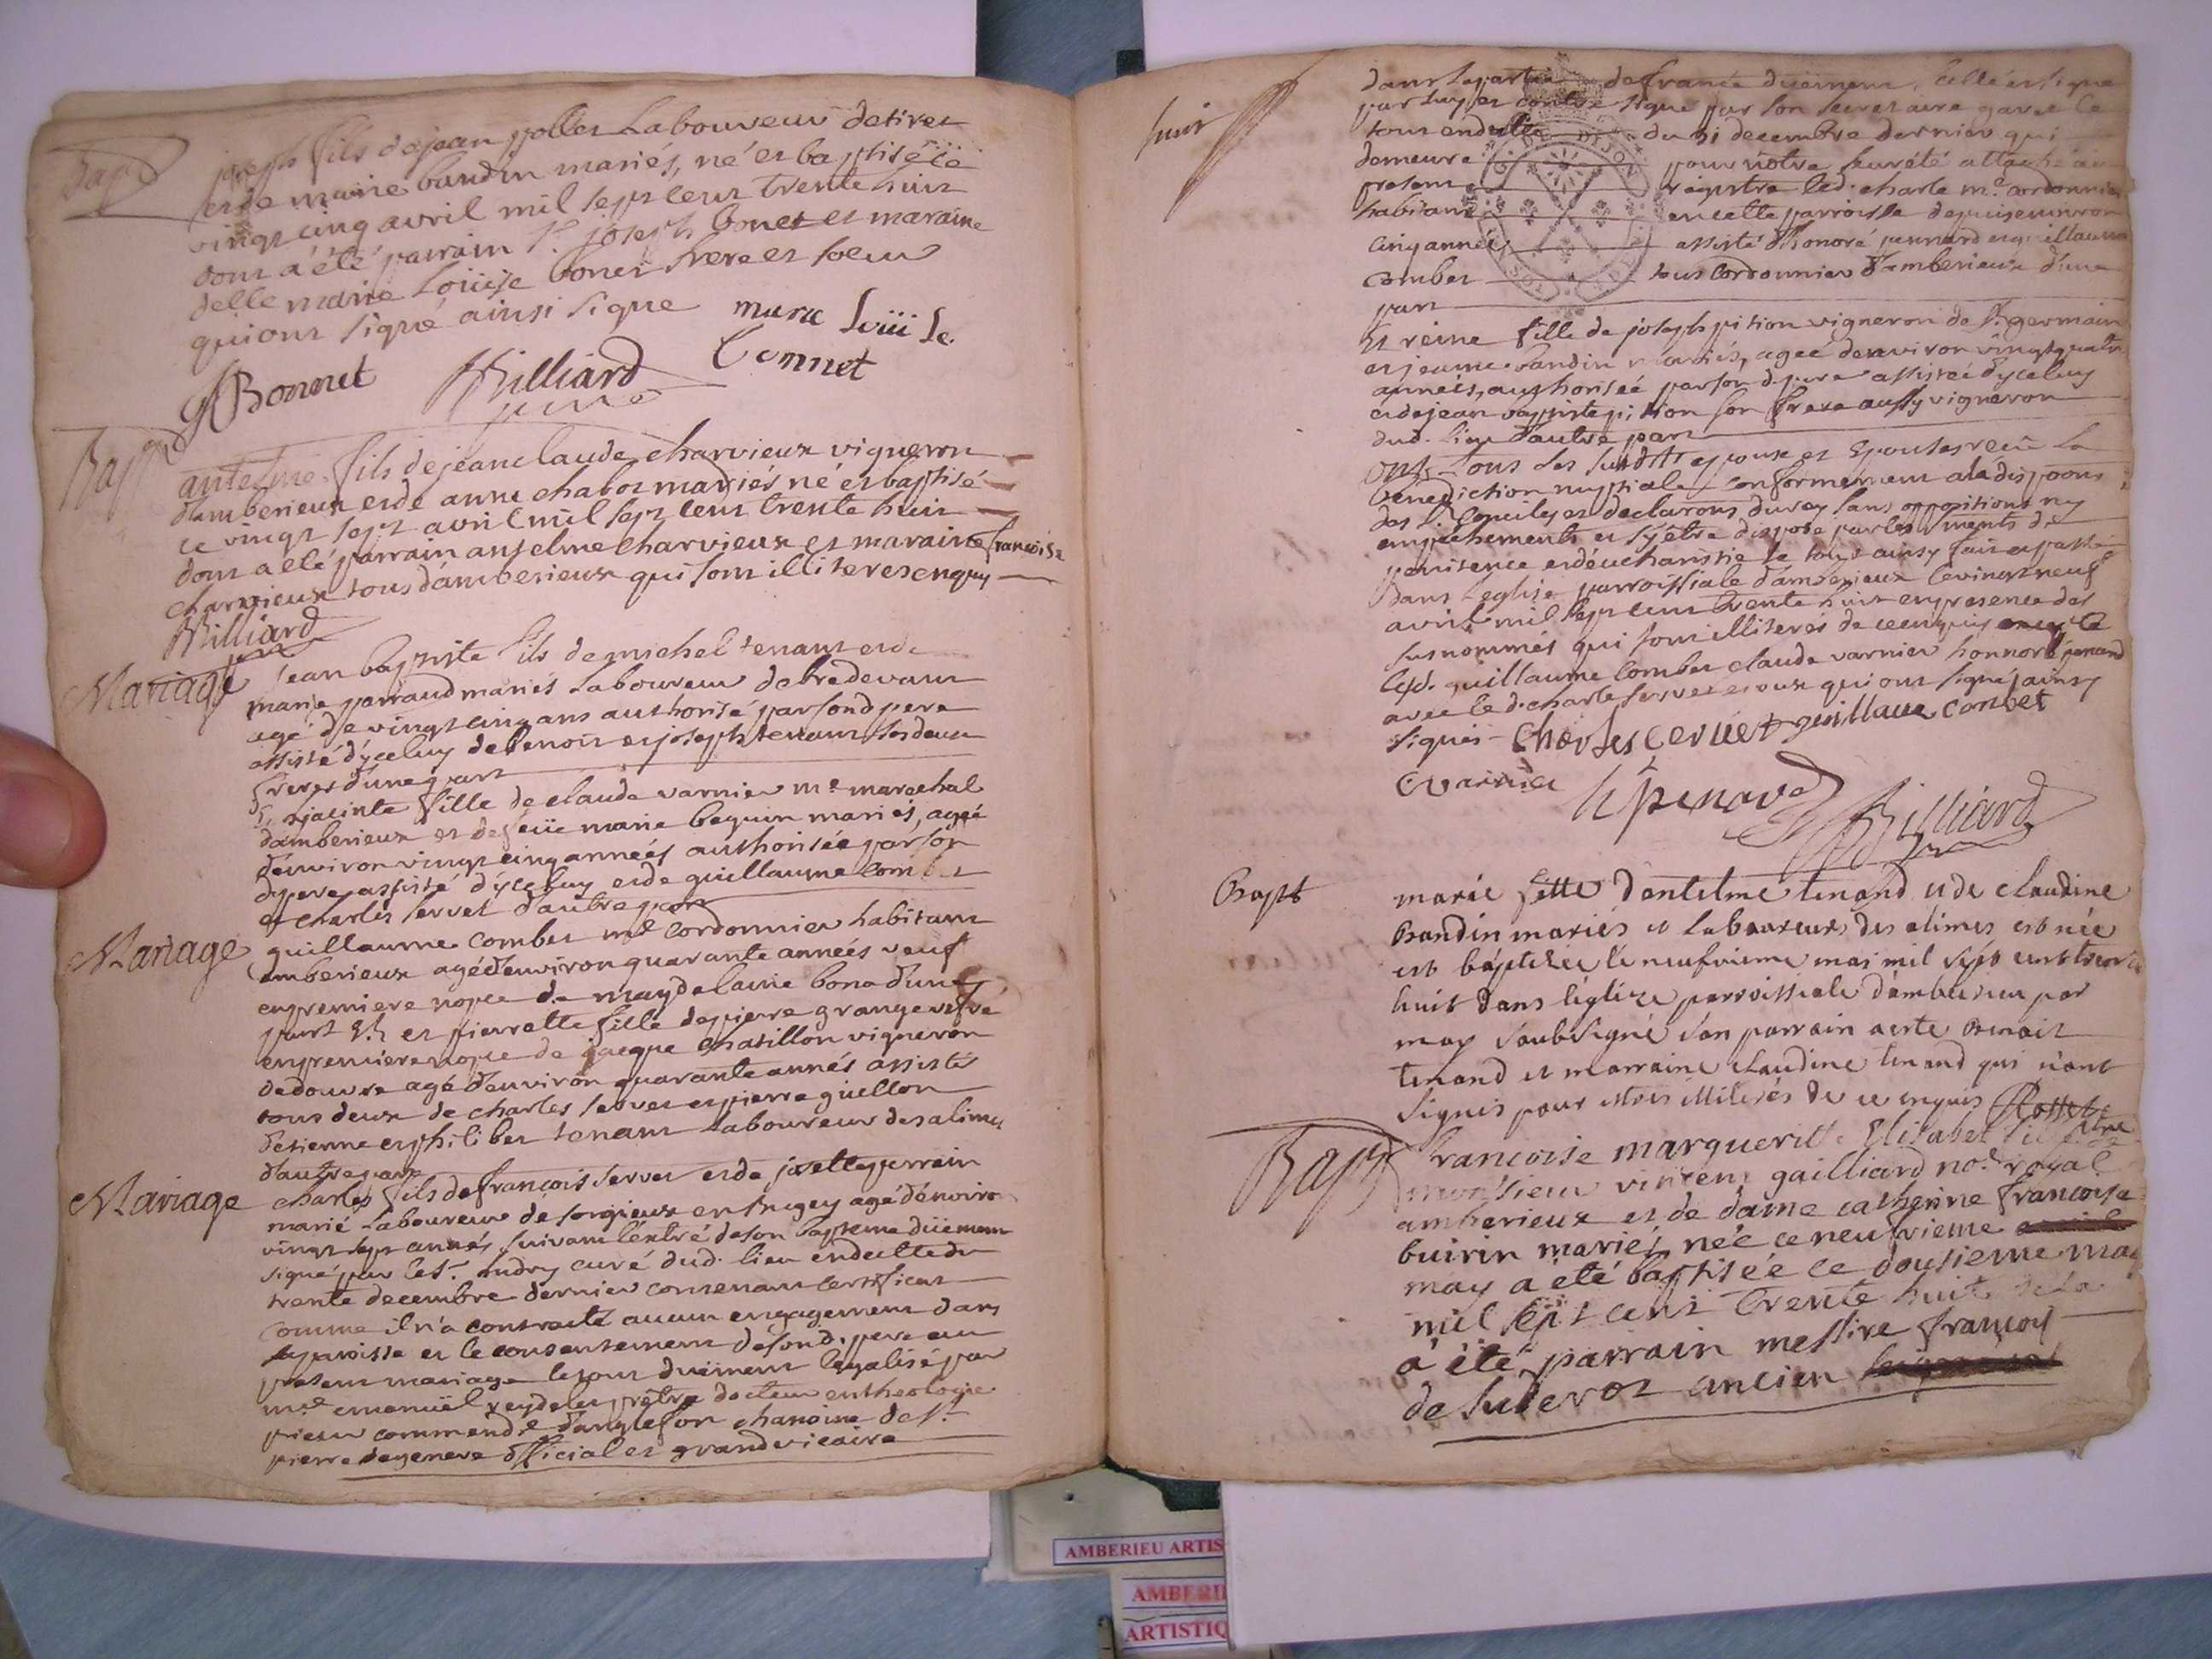 Bapt
joseph fils de jean pollet Laboureur de tiret
et de marie baudin mariés, né et baptisé ce
vingt cinq avril mil sept cent trente huit
dont a été parrain Sr joseph bonet et maraine
delle marie Loüise bonet frere et soeur
qui ont signé ainsi signe marie Loüise
Bonnet Billiard Connet
Bapt
antelme fils de jean claude charvieux vigneron
d'amberieux et de anne chabot mariés né et baptisé
ce vingt sept avril mil sept cent trente huit
dont a été parrain anselme charvieux et maraine francoise
charvieux tous d'amberieux qui sont illiteres enquis
Billiard
Mariage
jean baptiste fils de michel tenant et de
marie parraud mariés Laboureur de bredevant
agé de vingt cinq ans authorisé par sond pere
assisté d'yceluy de benoit et joseph tenant ses deux
freres d'une part
Et hjacinte fille de claude varnier me marechal
d'amberieux et de feüe marie beguin mariés, ageé
d'environ vingt cinq anneés authoriseé par son
d. pere, assisté d'yceluy et de guillaume combet
et charles servet d'autre part
Mariage
guillaume combet me cordonnier habitant
amberieux agé d'environ quarante anneés veuf
en premiere nopce de maydelaine bona d'une
part et pierrette fille de pierre grange vefve
en premiere nopce de jacque chatillon vigneron
de douvre agé d'environ quarante anneés assistés
tous deux de charles servet et pierre guellon
d'etienne et philibet tenant Laboureur des alimes
d'autre part
Mariage
charles fils de françois servet et de josette perrain
marié Laboureur de songieux en bugey agé d'environ
vingt sept anneés suivant l'extré de son bapteme düement
signé par le Sr. Ludry curé dud. lieu en datte du
trente decembre dernier contenant certificat
comme il n'a contracté aucun engagement dans
sa paroisse et le consentement de sond. pere au
present mariage le tout düement legalisé par
me. emanuël reydelet prêtre docteur en theologie
prieur commend. d'anglefor chanoine de St.
pierre de geneve official et grand vicaire
suite
dans la partie de france düement, celle cy signe
par luy et contre signe par son secretaire
tout en datte du 31 decembre dernier qui
demeure pour notre seureté attaché au
present registre led. charle me. cordonnier
habitant en cette parroisse depuis environ
cinq anneés assisté d'honoré penard et guillaume
combet tous cordonnier d'amberieux d'une
part
Et reine fille de joseph pition vigneron de St. germain
et jeanne baudin mariés, ageé d'environ vingt quatre
anneés, authoriseé par son d. pere assisteé d'yceluy
et de jean baptiste pition son frere aussy vigneron
dud. lieu d'autre part
ont tous les susdits epoux et epouses receu la
benediction nuptiale conformement
des S. Conciles et declarons du rey sans oppositions ny
empechements et s'y être disposé par les sments de
penitence et d'eucharistie le tout ainsy fait et passé
dans l'eglise parroissiale d'amberieux le vingt neuf
avril mil sept cent trente huit en presence des
susnommés qui sont illiteres de ce enquis
lesd. guillaume combet claude varnier honnoré penard
avec le d. charle servet epoux qui ont signé ainsy
signés Charles Cerüet guillaue conbet
C Varnier h penard Billiard
Bapt
marie fille d'antelme tenand et de claudine
Baudin mariés et Laboureurs des alimes est née
est baptisée le neufvieme mai mil sept cent trente
huit dans l'eglize parroissiale d'amberieux par
moy soubsigné son parrain a esté Benoit
tenand et marraine claudine tenand qui n'ont
signés pour etres illiterés de ce enquis
Bapt
francoise marguerite Elisabet fille de
monsieur vincent gailliard nore royal
amberieux et de dame catherine francoise
buirin mariés, née ce neufvieme
may a été baptisée ce dousieme may
mil sept cent trente huit de la
a été parrain messire françois
de ancien
AMBERIEU ARTIS
AMBERI
ARTISTIQ